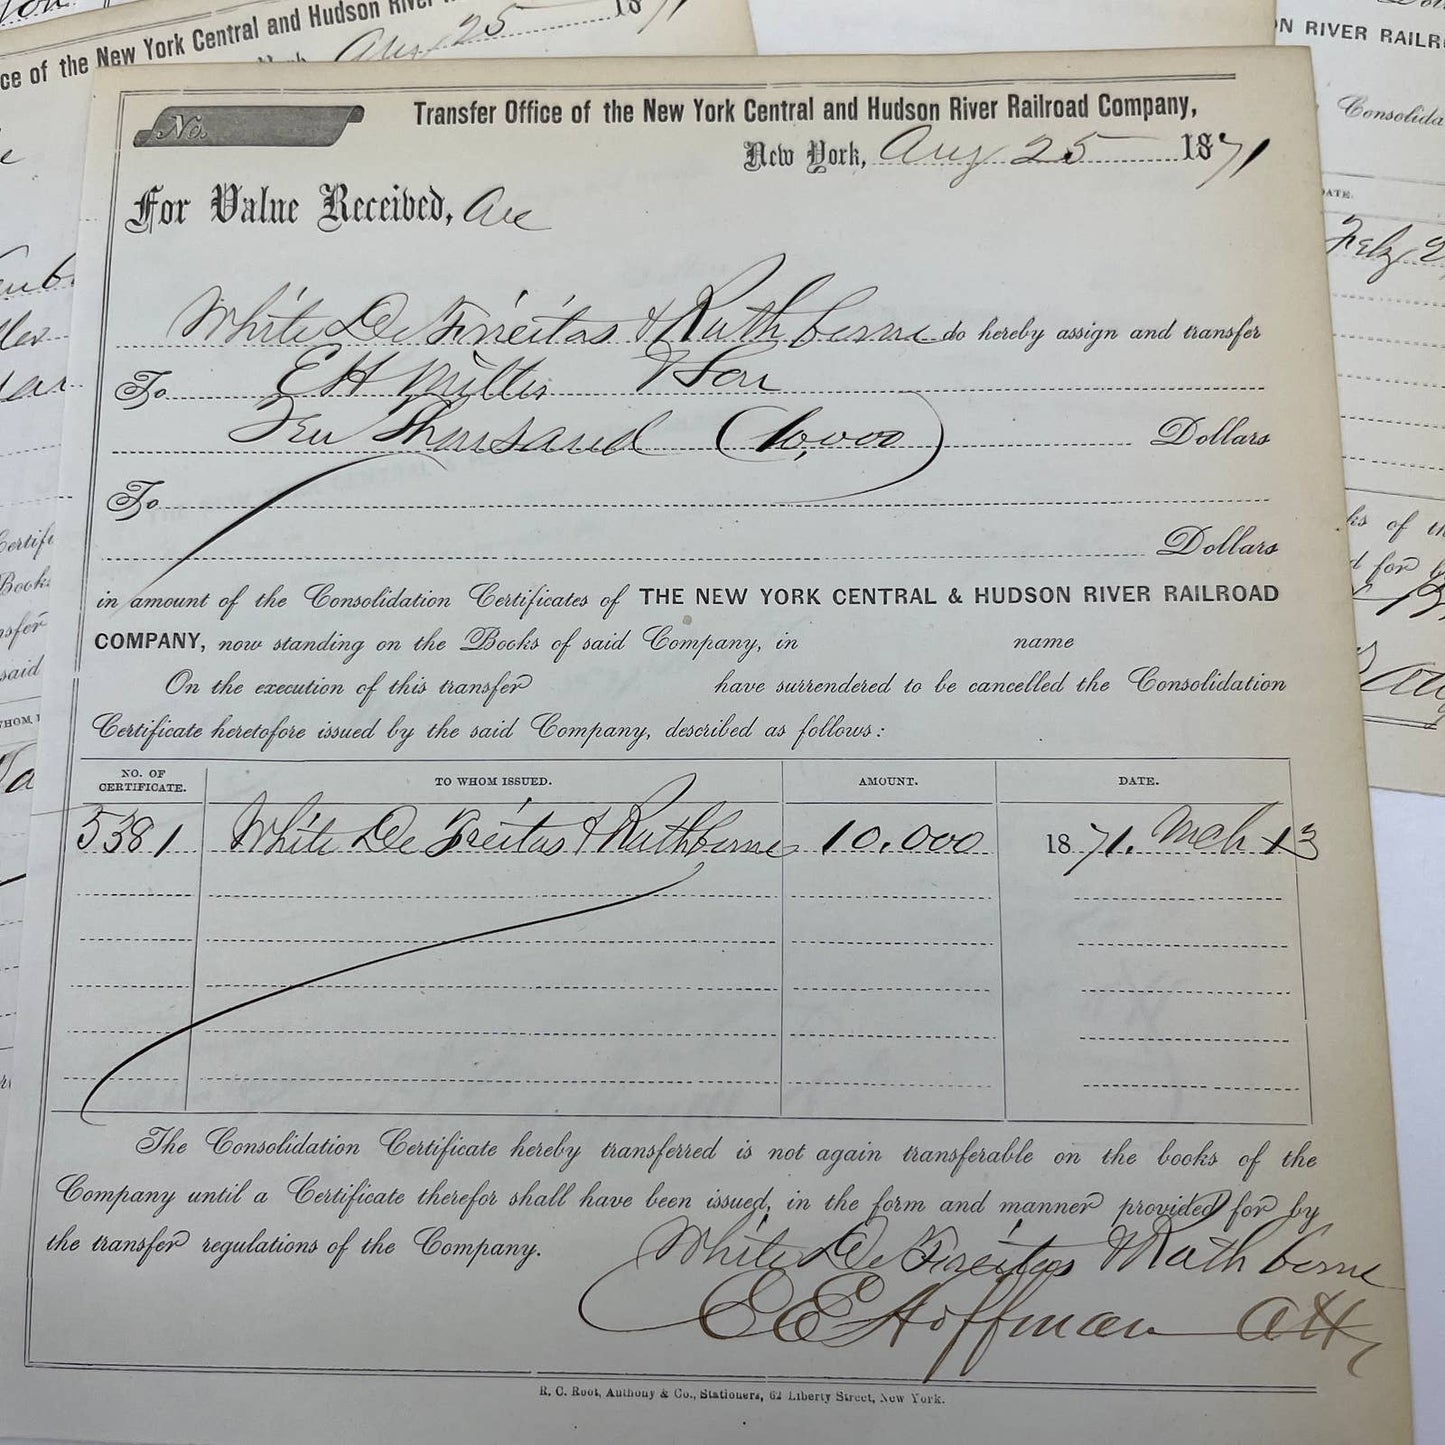 ce of the New York Central and Hudson River
Aug 25 1871
No.
Transfer Office of the New York Central and Hudson River Railroad Company,
New York, Aug 25 1871
For Value Received,
White De Freitas & Rathborne do hereby assign and transfer
To E H Miller & Son
Ten Thousand (10,000) Dollars
To
Dollars
in amount of the Consolidation Certificates of THE NEW YORK CENTRAL & HUDSON RIVER RAILROAD
COMPANY, now standing on the Books of said Company, in name
On the execution of this transfer have surrendered to be cancelled the Consolidation
Certificate heretofore issued by the said Company, described as follows:
NO. OF CERTIFICATE. TO WHOM ISSUED. AMOUNT. DATE.
5381 White De Freitas & Rathborne 10.000 1871. Mch 13
The Consolidation Certificate hereby transferred is not again transferable on the books of the
Company until a Certificate therefor shall have been issued, in the form and manner provided for by
the transfer regulations of the Company.
White De Freitas & Rathborne
E E Hoffman Atty
R. C. Root, Anthony & Co., Stationers, 62 Liberty Street, New York.
N RIVER RAILR
Consolida
DATE.
ks of th
d for b
Certifi
Books
nsfer
said
WHOM I